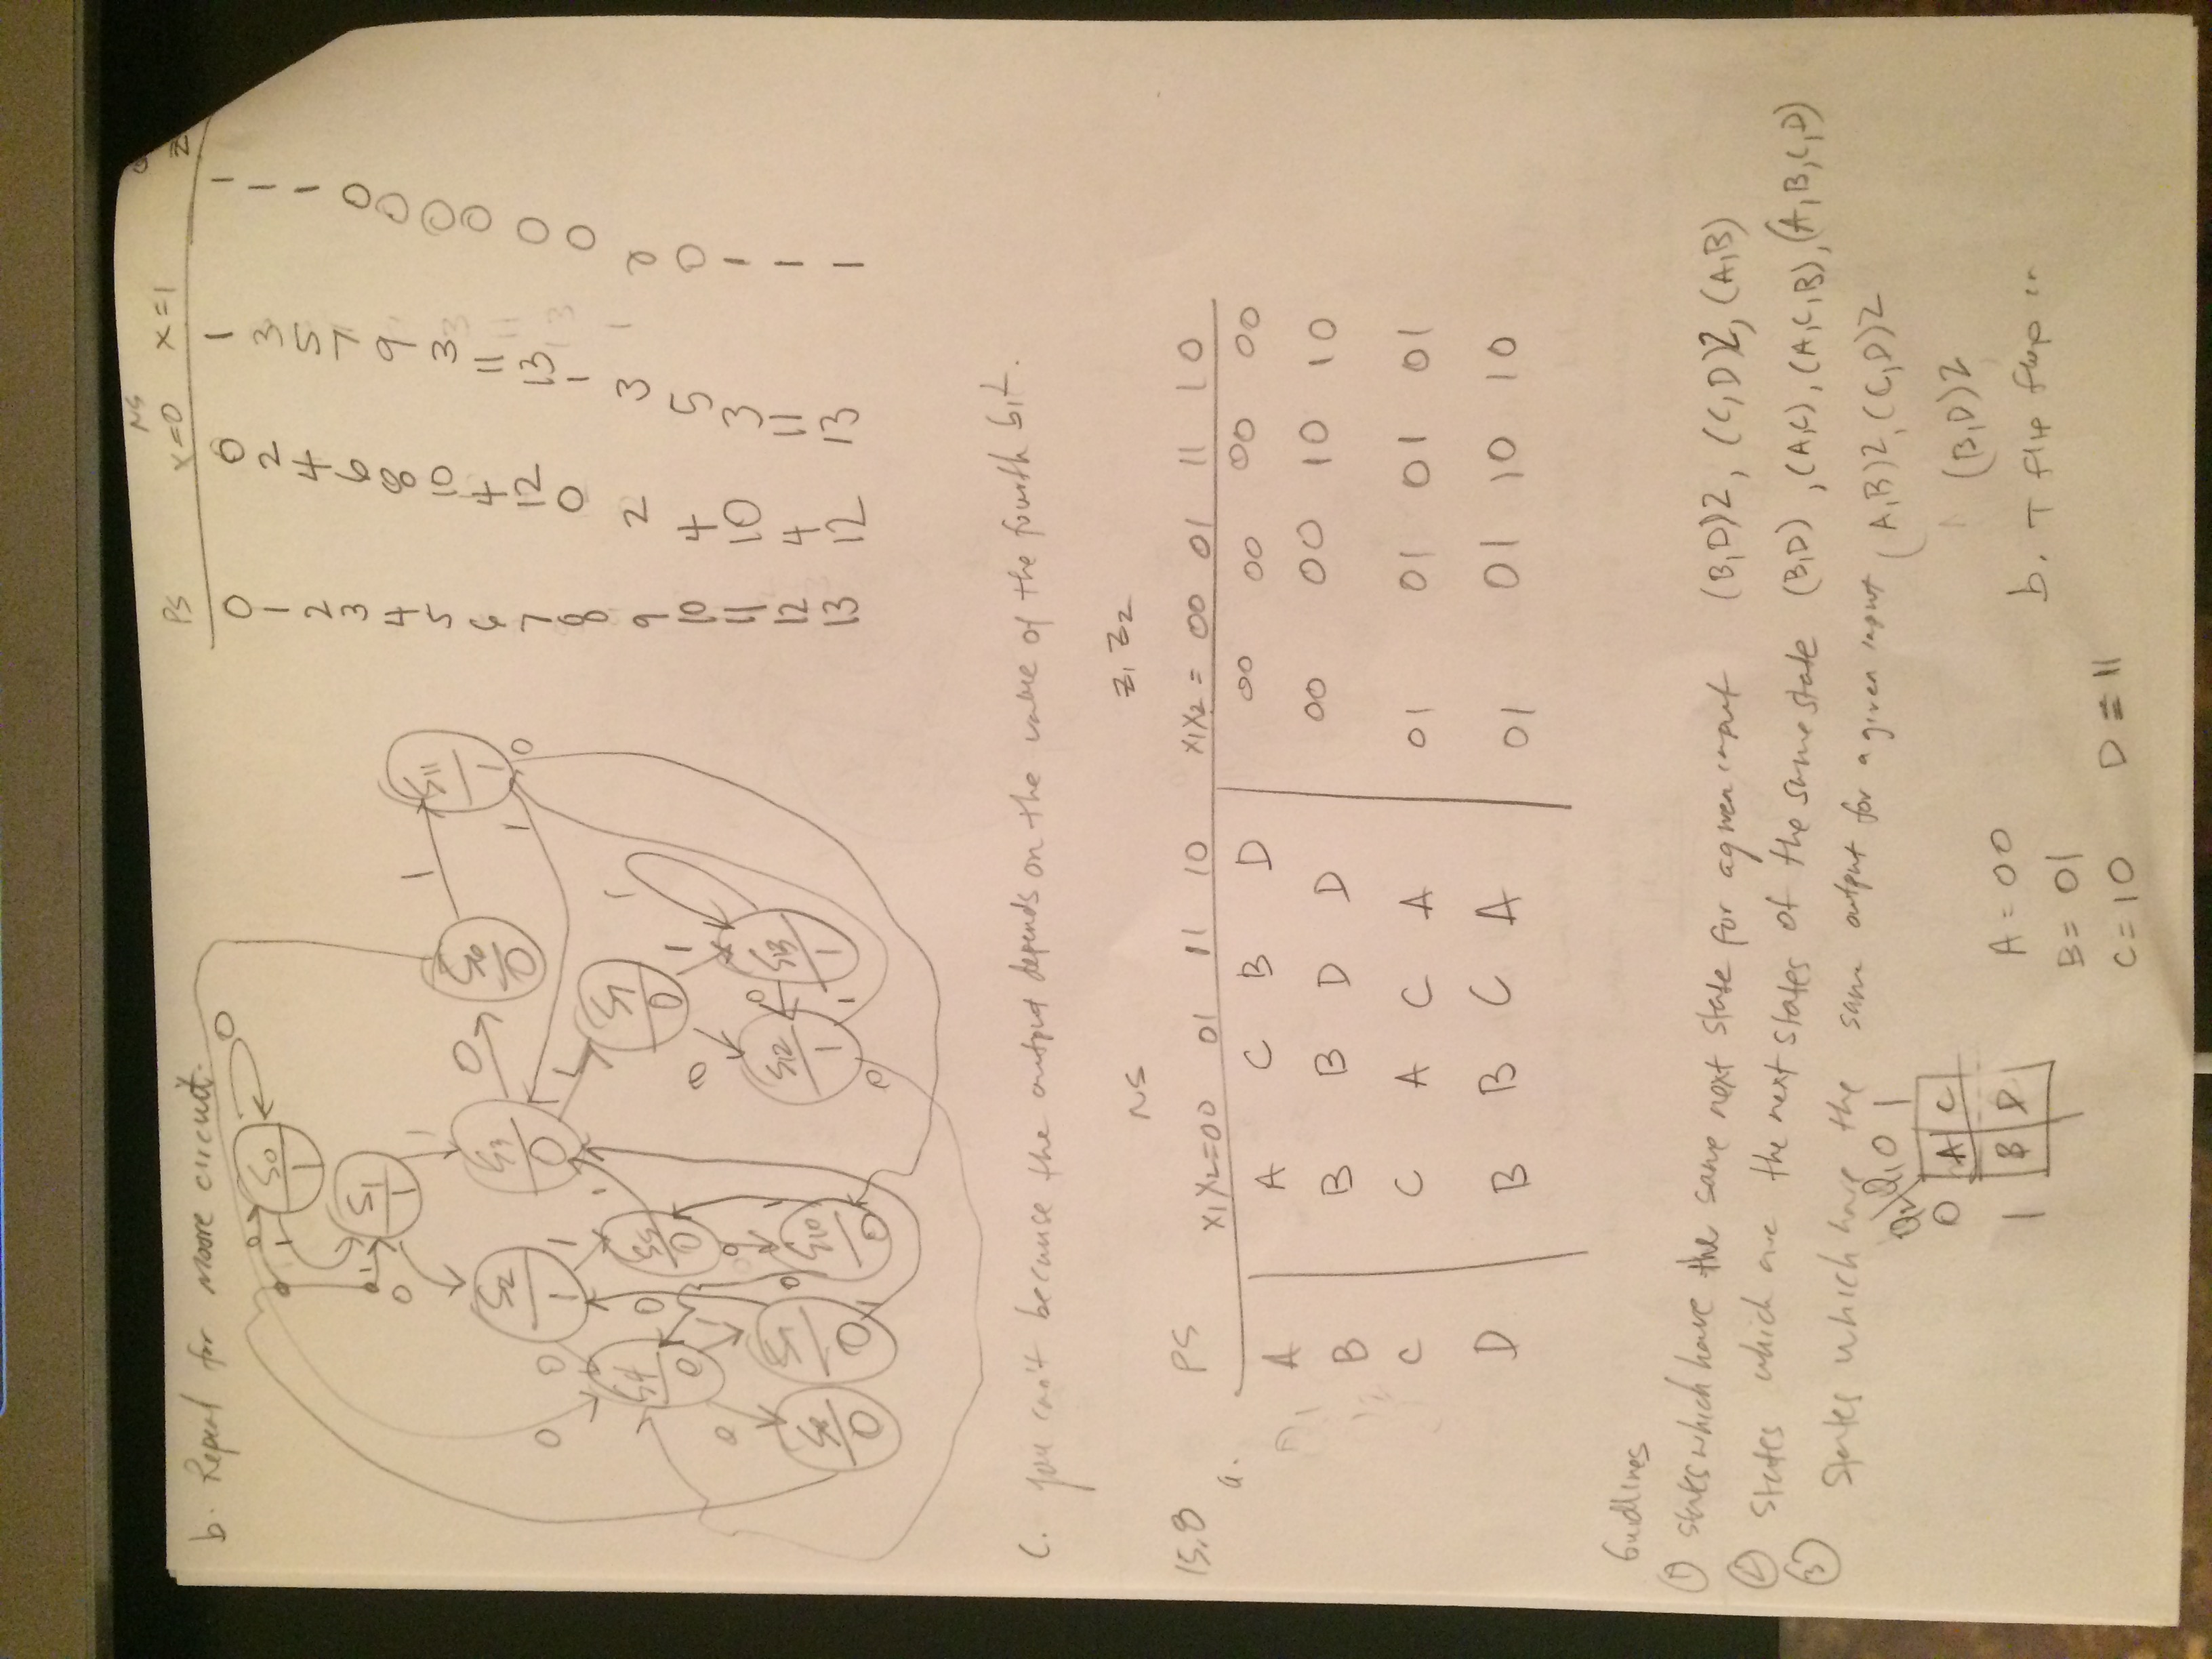 b. Repeat for Moore circuit.
NS
PS x=0 x=1 z
0 0 1 1
1 2 3 1
2 4 5 1
3 6 7 0
4 8 9 0
5 10 3 0
6 4 11 0
7 12 13 0
8 0 1 0
9 2 3 0
10 4 5 0
11 10 3 1
12 4 11 1
13 12 13 1
0 S0 0
1 1
1 S1
0 1 1
S2 S3 0 S6 1 S11
1 0 0 1
0 0 1 1 1 1 0
S4 0 S5 S7 1
0 0 0
0 1 0 0 1
S8 S10 0 S12 0 S13
0 0 0 1 1 1
0
C. you can't because the output depends on the value of the fourth bit.
NS Z1 Z2
15.8 PS X1X2=00 01 11 10 X1X2= 00 01 11 10
a.
A A C B D 00 00 00 00
B B B D D 00 00 10 10
C C A C A 01 01 01 01
D B B C A 01 01 10 10
Guidlines
① states which have the same next state for a given input (B,D)2, (C,D)2, (A,B)
② states which are the next states of the same state (B,D), (A,C), (A,C,B), (A,B,C,D)
③ states which have the same output for a given input (A,B)2, (C,D)2
(B,D)2
Q2\Q1 0 1
0 A C
1 B D
A = 00
B = 01
C = 10 D = 11
b. T flip flop in